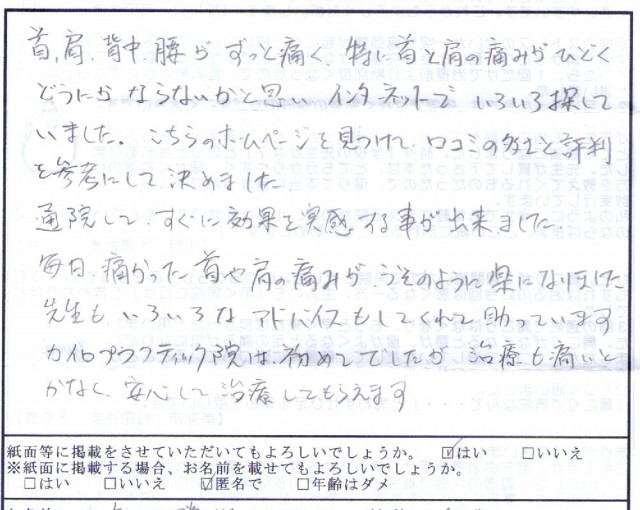 首、肩、背中、腰がずっと痛く、特に首と肩の痛みがひどく
どうにかならないかと思い インタネットで いろいろ探して
いました。こちらのホームページを見つけて、口コミの多さと評判
を参考にして、決めました
通院して、すぐに効果を実感する事が出来ました
毎日、痛かった首や肩の痛みが、うそのように楽になりました
先生も いろいろな アドバイスもしてくれて 助っています
カイロプラクティック院は、初めてでしたが 治療も痛いと
かなく、安心して治療してもらえます
紙面等に掲載をさせていただいてもよろしいでしょうか。 ☑はい □いいえ
※紙面に掲載する場合、お名前を載せてもよろしいでしょうか。
□はい □いいえ ☑匿名で □年齢はダメ